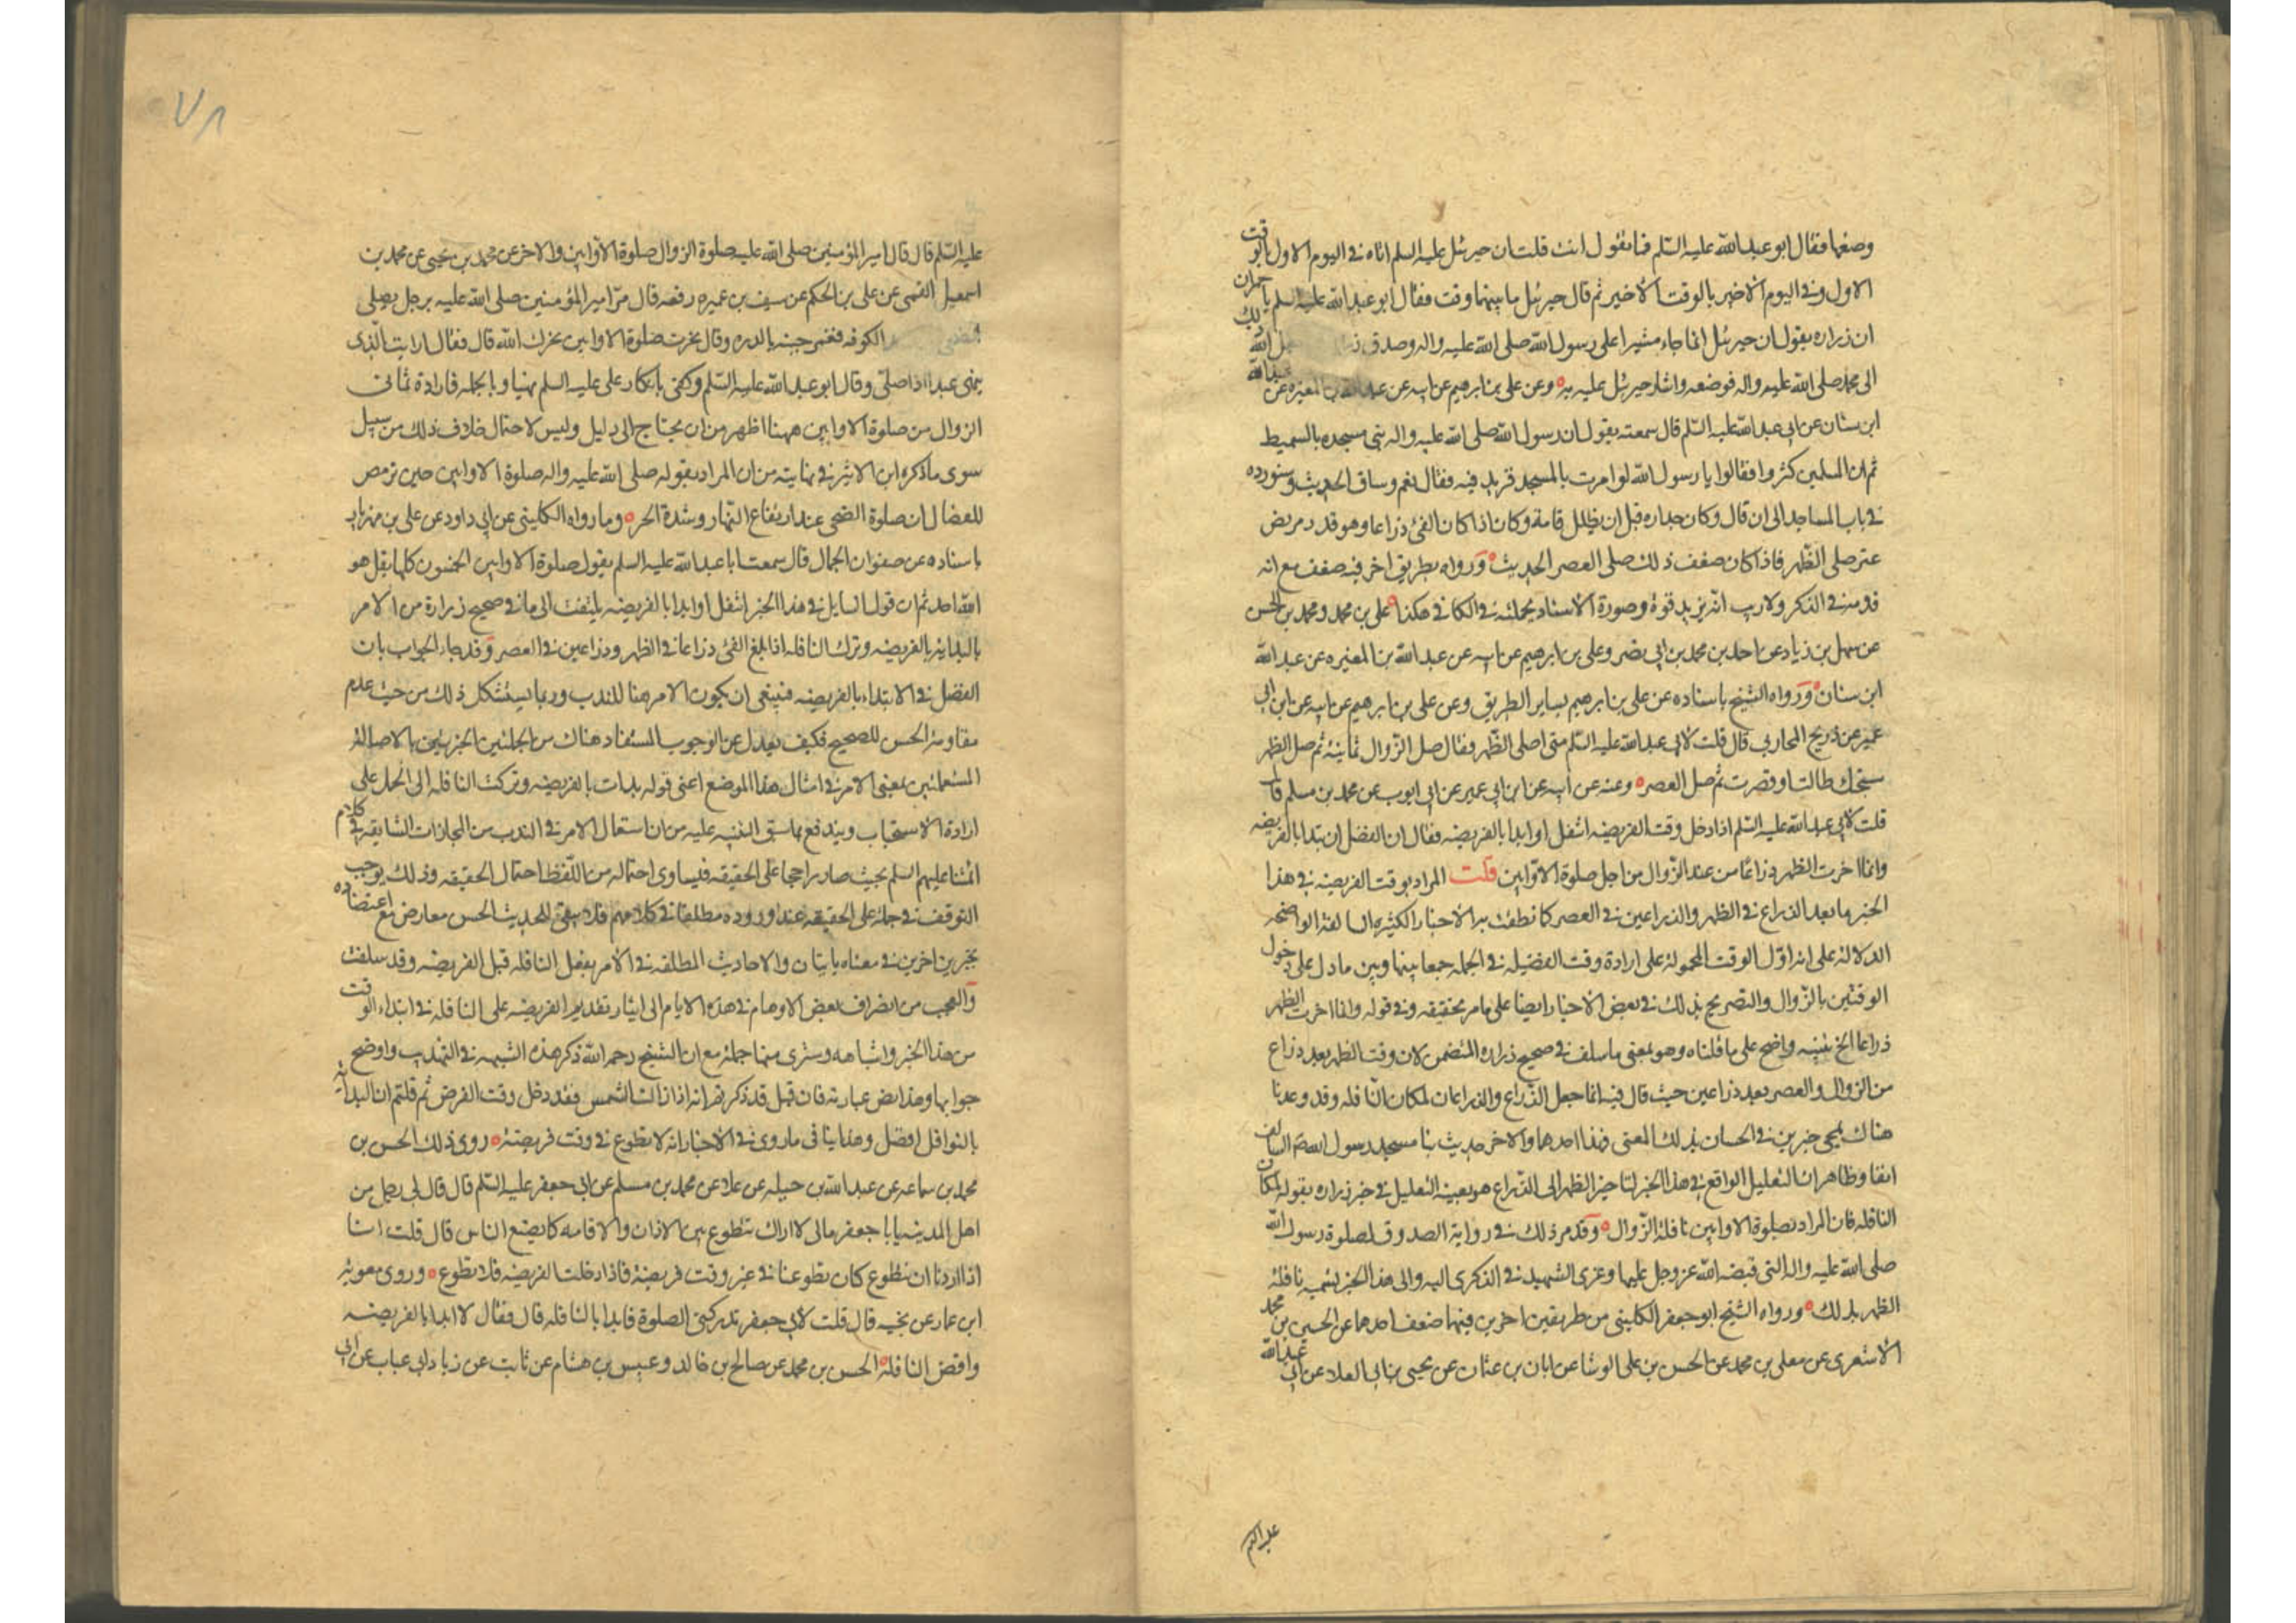 وضعها فقال ابو عبد الله عليه السّلم فما تقول انت قلت ان جبرئيل عليه السلم اتاه في اليوم الاول بالوقت
الاول وفي اليوم الاخير بالوقت الاخير ثم قال جبرئيل ما بينهما وقت فقال ابو عبد الله عليه السلم يا حمران
ان زراره يقول ان جبرئيل انما جاء مشيرا على رسول الله صلى الله عليه واله وصدق زرارة جعل الله ذلك
الى محمد صلى الله عليه واله فوضعه واشار جبرئيل عليه به وعن علي بن ابرهيم عن ابيه عن عبد الله بن المغيره عن عبد الله
ابن سنان عن ابي عبد الله عليه السّلم قال سمعته يقول ان رسول الله صلى الله عليه واله بنى مسجده بالسميط
ثم ان المسلمين كثروا فقالوا يا رسول الله لو امرت بالمسجد فزيد فيه فقال نعم وساق الحديث وسنورده
في باب المساجد الى ان قال وكان جداره قبل ان يظلل قامة وكان اذا كان الفئ ذراعا وهو قدر مربض
عنز صلى الظهر فاذا كان ضعف ذلك صلى العصر الحديث ورواه بطريق اخر فيه ضعف مع انه
قدمه في الذكر ولا ريب انه يزيد قوة وصورة الاسناد بجملته في الكافي هكذا علي بن محمد ومحمد بن الحسن
عن سهل بن زياد عن احمد بن محمد بن ابي نصر وعلي بن ابرهيم عن ابيه عن عبد الله بن المغيره عن عبد الله
ابن سنان ورواه الشيخ باسناده عن علي بن ابرهيم بساير الطريق وعن علي بن ابرهيم عن ابيه عن ابن ابي
عمير عن ذريح المحاربي قال قلت لابي عبد الله عليه السّلم متى اصلى الظهر فقال صل الزوال ثمانية ثم صل الظهر
سبحتك طالت او قصرت ثم صل العصر وعنه عن ابيه عن ابن ابي عمير عن ابي ايوب عن محمد بن مسلم قال
قلت لابي عبد الله عليه السّلم اذا دخل وقت الفريضه اتنفل او ابدا بالفريضه فقال ان الفضل ان تبدا بالفريضه
وانما اخرت الظهر ذراعا من عند الزوال من اجل صلوة الاوّابين قلت المراد بوقت الفريضه في هذا
الخبر ما بعد الذراع في الظهر والذراعين في العصر كما نطقت به الاخبار الكثيره السالفة الواضحه
الدلالة على انه اول الوقت المحمولة على ارادة وقت الفضيله في الجمله جمعا بينها وبين ما دل على دخول
الوقتين بالزوال والتصريح بذلك في بعض الاخبار ايضا على ما مر تحقيقه وفي قوله وانما اخرت الظهر
ذراعا الخ تنبيه واضح على ما قلناه وهو بمعنى ما سلف في صحيح زراره المتضمن لان وقت الظهر بعد ذراع
من الزوال والعصر بعد ذراعين حيث قال فيه انما جعل الذراع والذراعان لمكان النافله وقد وعدنا
هناك بمجئ خبرين في الحسان بذلك المعنى فهذا احدهما والاخر حديث بنا مسجد رسول الله ص السالف
انفا وظاهر ان التعليل الواقع في هذا الخبر لتاخير الظهر الى الذراع هو بعينه التعليل في خبر زراره بقوله لمكان
النافله فان المراد بصلوة الاوابين نافلة الزوال وقد مر ذلك في رواية الصدوق لصلوة رسول الله
صلى الله عليه واله التي قبضه الله عز وجل عليها وعزى الشهيد في الذكرى اليه والى هذا الخبر تسميه نافلة
الظهر بذلك ورواه الشيخ ابو جعفر الكليني من طريقين اخرين فيهما ضعف احدهما عن الحسين بن محمد
الاشعري عن معلى بن محمد عن الحسن بن علي الوشا عن ابان بن عثمان عن يحيى بن ابي العلاء عن ابي عبد الله
عليه السلم
٧٨
عليه السّلم قال قال امير المؤمنين صلى الله عليه صلوة الزوال صلوة الاوّابين والاخر عن محمد بن يحيى عن محمد بن
اسمعيل القمى عن علي بن الحكم عن سيف بن عميره رفعه قال مرّ امير المؤمنين صلى الله عليه برجل يصلي
الضحى الكوفه فغمز جنبه بالدره وقال نحرت صلوة الاوابين نحرك الله قال فقال ارايت الذى
ينهى عبدا اذا صلّى وقال ابو عبد الله عليه السّلم وكفى بانكار علي عليه السلم نهيا وبالجمله فارادة ثماني
الزوال من صلوة الاوابين ههنا اظهر من ان يحتاج الى دليل وليس لاحتمال خلاف ذلك من سبيل
سوى ما ذكره ابن الاثير في نهايته من ان المراد بقوله صلى الله عليه واله صلوة الاوابين حين ترمض
الفصال ان صلوة الضحى عند ارتفاع النهار وشدة الحر وما رواه الكليني عن ابي داود عن علي بن مهزيار
باسناده عن صفوان الجمال قال سمعت ابا عبد الله عليه السلم يقول صلوة الاوابين الخمسون كلها بقل هو
الله احد ثم ان قول السايل في هذا الخبر اتنفل او ابدا بالفريضه يلتفت الى ما في صحيح زرارة من الامر
بالبداية بالفريضه وترك النافله اذا بلغ الفئ ذراعا في الظهر وذراعين في العصر وقد جاء الجواب بان
الفضل في الابتداء بالفريضه فينبغى ان يكون الامر هنا للندب وربما يستشكل ذلك من حيث عدم
مقاومة الحسن للصحيح فكيف يعدل عن الوجوب المستفاد هناك من الجملتين الخبريتين بالاصالة
المستعملتين بمعنى الامر في امثال هذا الموضع اعني قوله بدات بالفريضه وتركت النافله الى الحمل على
ارادة الاستحباب ويندفع بما سبق التنبيه عليه من ان استعمال الامر في الندب من المجازات الشايعه في كلام
ائمتنا عليهم السلم بحيث صار راجحا على الحقيقه فيساوى احتماله من اللفظ احتمال الحقيقه وذلك يوجب
التوقف في حمله على الحقيقه عند وروده مطلقا في كلامهم فلا يبقى للحديث الحسن معارض مع اعتضاده
بخبرين اخرين في معناه ياتيان والاحاديث المطلقه في الامر بفعل النافله قبل الفريضه وقد سلفت
والعجب من انصراف بعض الاوهام في هذه الايام الى ايثار تقديم الفريضه على النافله في ابتداء الوقت
من هذا الخبر واشباهه وسترى منها جملة مع ان الشيخ رحمه الله ذكر هذه الشبهه في التهذيب واوضح
جوابها وهذا نص عبارته فان قيل قد ذكرتم انه اذا زالت الشمس فقد دخل وقت الفرض ثم قلتم ان البداية
بالنوافل افضل وهذا ينافى ما روى في الاخبار انه لا تطوع في وقت فريضة روى ذلك الحسن بن
محمد بن سماعه عن عبد الله بن جبله عن علاء عن محمد بن مسلم عن ابي جعفر عليه السّلم قال قال لي رجل من
اهل المدينه يا ابا جعفر مالى لا اراك تتطوع بين الاذان والاقامه كما يصنع الناس قال قلت انا
اذا اردنا ان نتطوع كان تطوعنا في غير وقت فريضة فاذا دخلت الفريضه فلا تطوع وروى معوية
ابن عمار عن نجيه قال قلت لابي جعفر تدركنى الصلوة فابدا بالنافله قال فقال لا ابدا بالفريضه
واقض النافلة الحسن بن محمد عن صالح بن خالد وعبيس بن هشام عن ثابت عن زياد ابي عتاب عن ابي